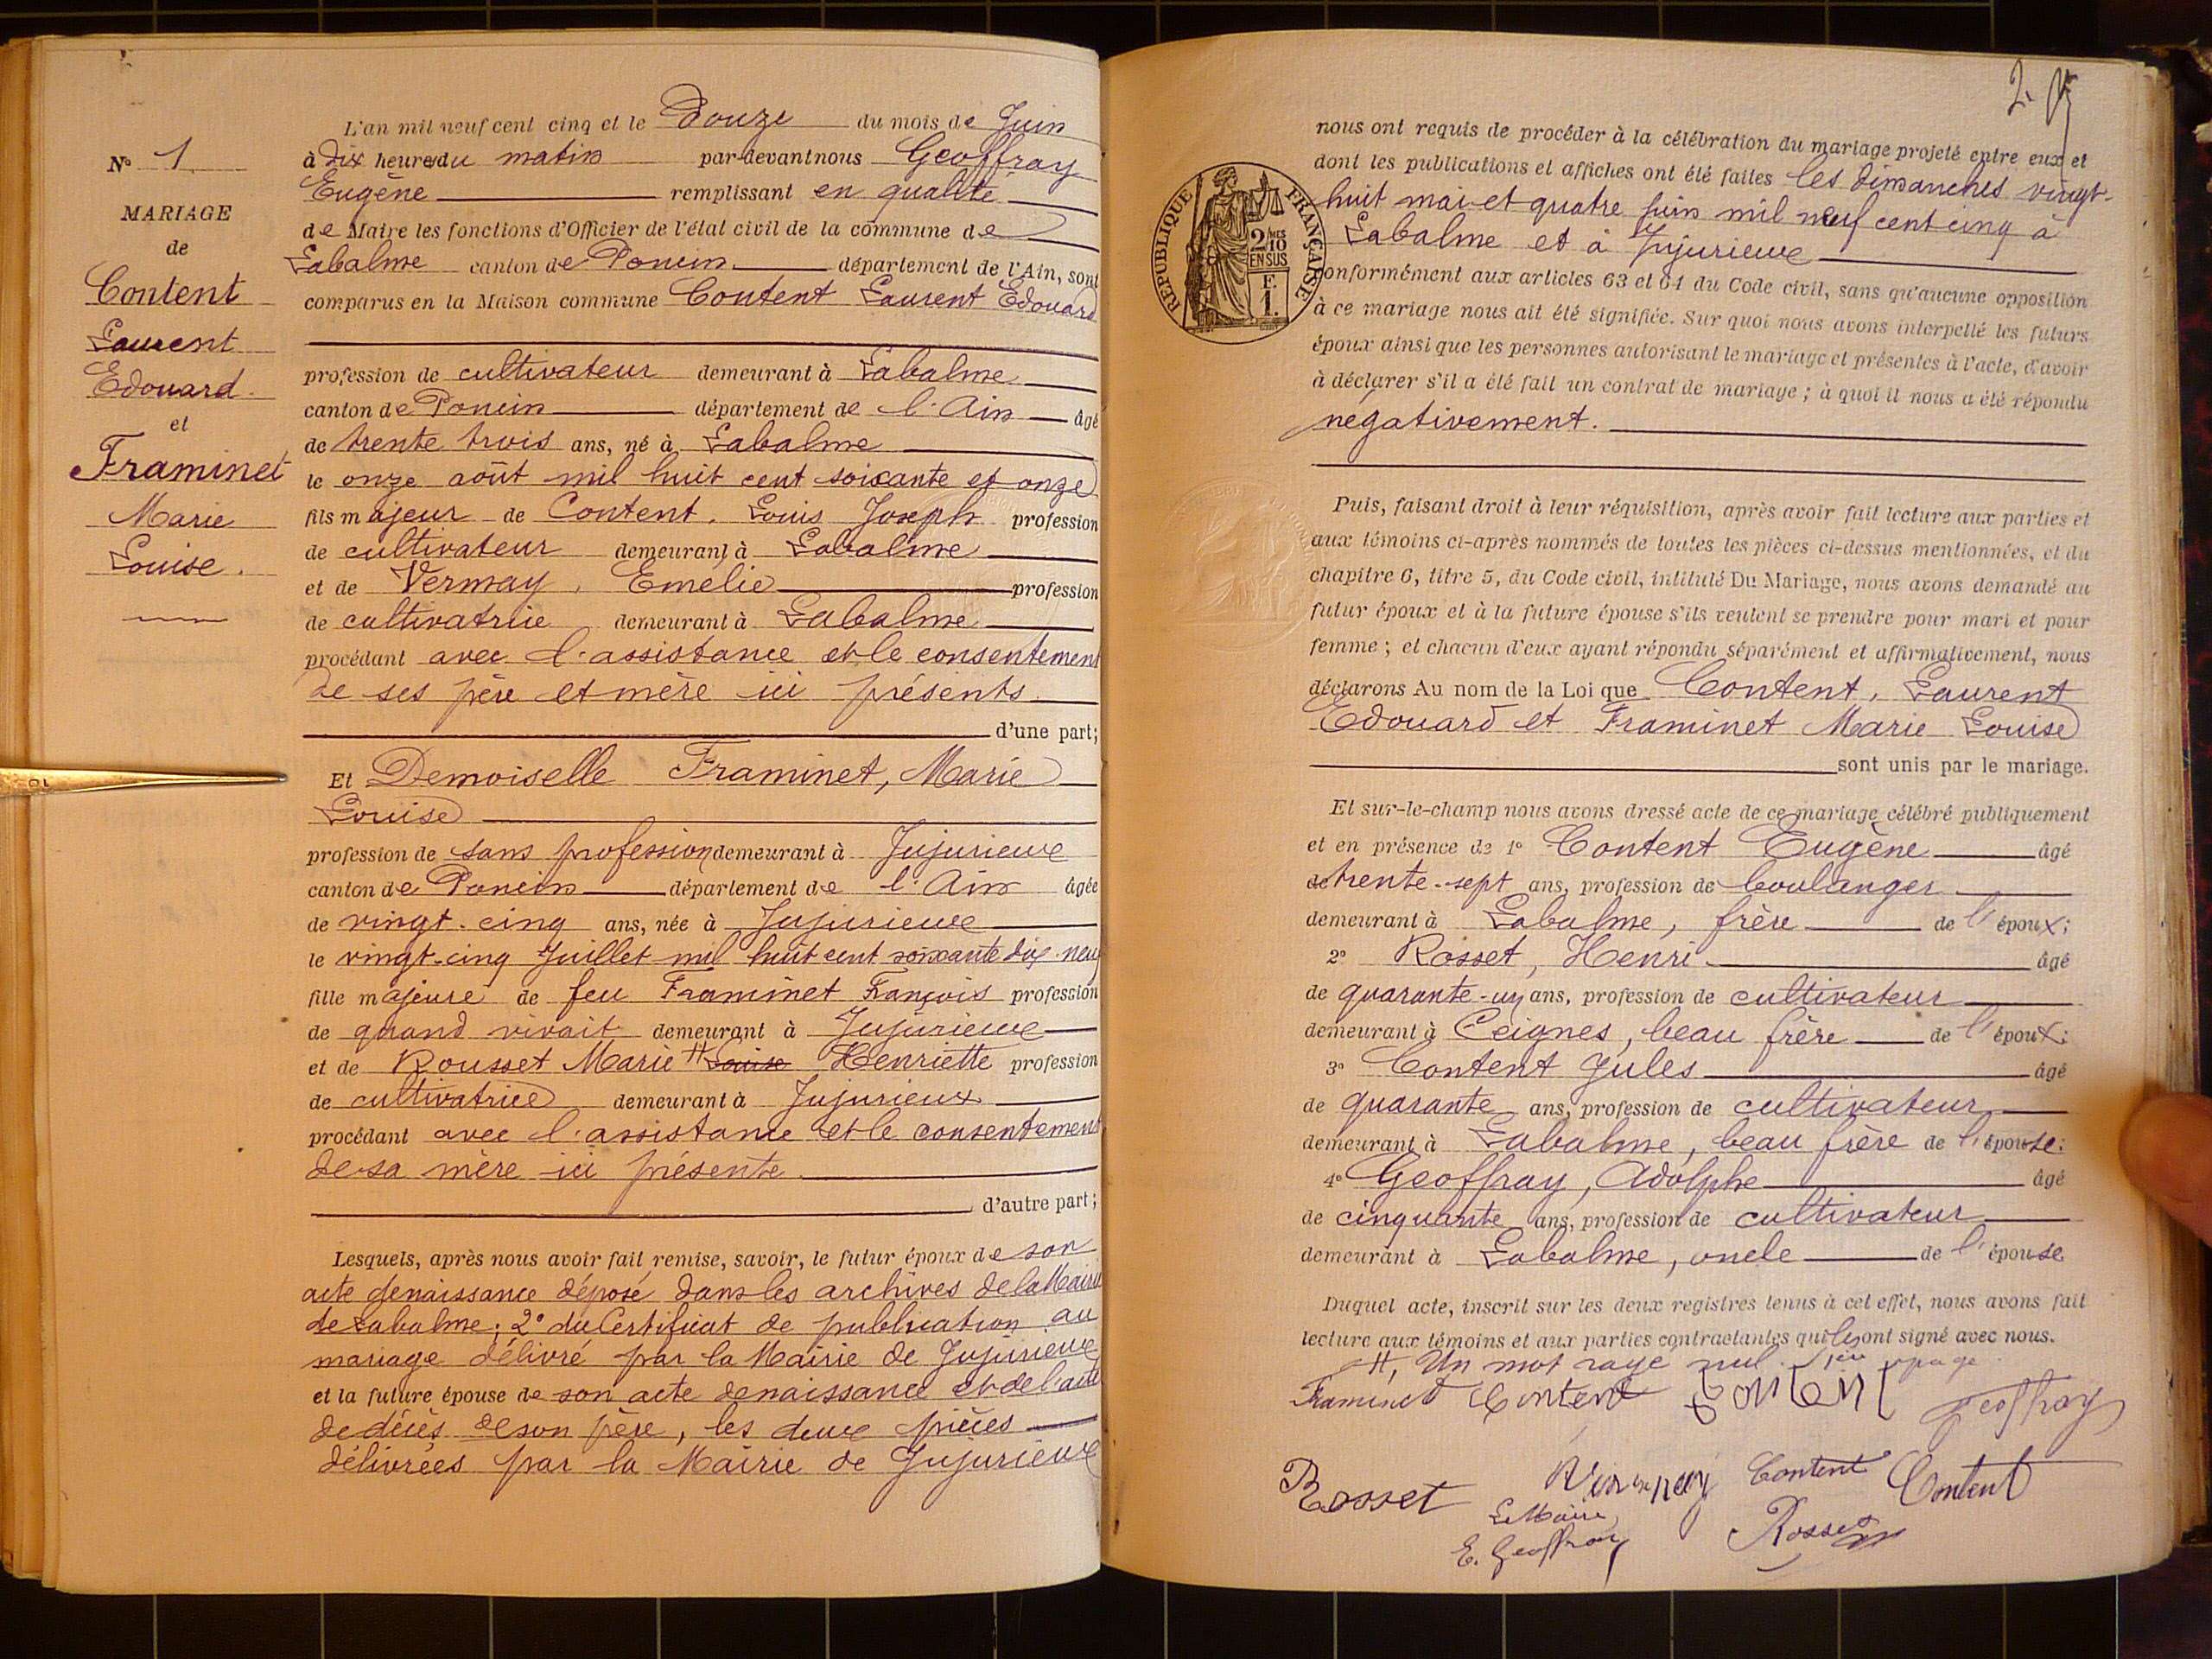 L'an mil neuf cent cinq et le Douze du mois de Juin
N° 1 à dix heures du matin par-devant nous Geoffray
Eugène remplissant en qualité
MARIAGE
de Maire les fonctions d'Officier de l'état civil de la commune de
de
Labalme canton de Poncin département de l'Ain, sont
Content
comparus en la Maison commune Content Laurent Edouard
Laurent
profession de cultivateur demeurant à Labalme
Edouard.
canton de Poncin département de l'Ain âgé
et
de trente trois ans, né à Labalme
Framinet
le onze août mil huit cent soixante et onze
Marie
fils majeur de Content, Louis Joseph profession
de cultivateur demeurant à Labalme
Louise.
et de Vermay, Emelie profession
de cultivatrice demeurant à Labalme
procédant avec l'assistance et le consentement
de ses père et mère ici présents
d'une part;
Et Demoiselle Framinet, Marie
Louise
profession de sans profession demeurant à Jujurieux
canton de Poncin département de l'Ain âgée
de vingt-cinq ans, née à Jujurieux
le vingt-cinq Juillet mil huit cent soixante dix-neuf
fille majeure de feu Framinet François profession
de quand vivait demeurant à Jujurieux
et de Rousset Marie # Louise Henriette profession
de cultivatrice demeurant à Jujurieux
procédant avec l'assistance et le consentement
de sa mère ici présente
d'autre part;
Lesquels, après nous avoir fait remise, savoir, le futur époux de son
acte de naissance déposé dans les archives de la Mairie
de Labalme; 2° du Certificat de publication au
mariage délivré par la Mairie de Jujurieux
et la future épouse de son acte de naissance et de l'acte
de décès de son père, les deux pièces
délivrées par la Mairie de Jujurieux
2.
nous ont requis de procéder à la célébration du mariage projeté entre eux et
dont les publications et affiches ont été faites les dimanches vingt-
huit mai et quatre juin mil neuf cent cinq à
Labalme et à Jujurieux
RÉPUBLIQUE FRANÇAISE
2/MES
10
EN SUS
F.
1.
conformément aux articles 63 et 64 du Code civil, sans qu'aucune opposition
à ce mariage nous ait été signifiée. Sur quoi nous avons interpellé les futurs
époux ainsi que les personnes autorisant le mariage et présentes à l'acte, d'avoir
à déclarer s'il a été fait un contrat de mariage; à quoi il nous a été répondu
négativement.
Puis, faisant droit à leur réquisition, après avoir fait lecture aux parties et
aux témoins ci-après nommés de toutes les pièces ci-dessus mentionnées, et du
chapitre 6, titre 5, du Code civil, intitulé Du Mariage, nous avons demandé au
futur époux et à la future épouse s'ils veulent se prendre pour mari et pour
femme; et chacun d'eux ayant répondu séparément et affirmativement, nous
déclarons Au nom de la Loi que Content, Laurent
Edouard et Framinet Marie Louise
sont unis par le mariage.
Et sur-le-champ nous avons dressé acte de ce mariage célébré publiquement
et en présence de 1° Content Eugène âgé
de trente-sept ans, profession de boulanger
demeurant à Labalme, frère de l'époux;
2° Rosset, Henri âgé
de quarante-un ans, profession de cultivateur
demeurant à Ceignes, beau frère de l'époux;
3° Content Jules âgé
de quarante ans, profession de cultivateur
demeurant à Labalme, beau frère de l'épouse;
4° Geoffray, Adolphe âgé
de cinquante ans, profession de cultivateur
demeurant à Labalme, oncle de l'épouse
Duquel acte, inscrit sur les deux registres tenus à cet effet, nous avons fait
lecture aux témoins et aux parties contractantes qui les ont signé avec nous.
#, Un mot rayé nul. 1ère page.
Framinet Content Content Geoffray
Rosset Vermay Content Content
Le Maire,
E. Geoffray Rosset